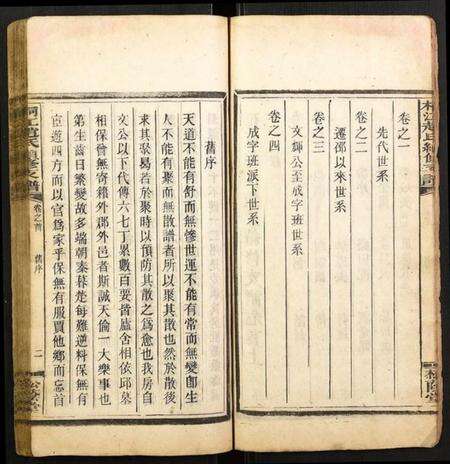 卷之一
先代世系
卷之二
遷邵以來世系
卷之三
文輝公至成字班世系
卷之四
成字班派下世系
舊序
天道不能有舒而無慘世運不能有常而無變卽生
人不能有聚而無散譜者所以聚其散也然於散後
求其聚曷若於聚時以預防其散之為愈也我房自
文公以下代傳六七丁累數百要皆廬舍相依邱墓
相保曾無寄籍外郡外邑者斯誠天倫一大樂事也
第生齒日繁變故多端朝秦暮楚每難逆料保無有
宦遊四方而以官為家乎保無有服賈他鄉而忘首
卷之首
舊序
二